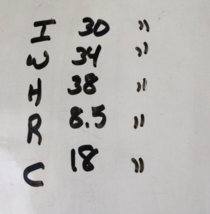 I 30 "
W 34 "
H 38 "
R 8.5 "
C 18 "